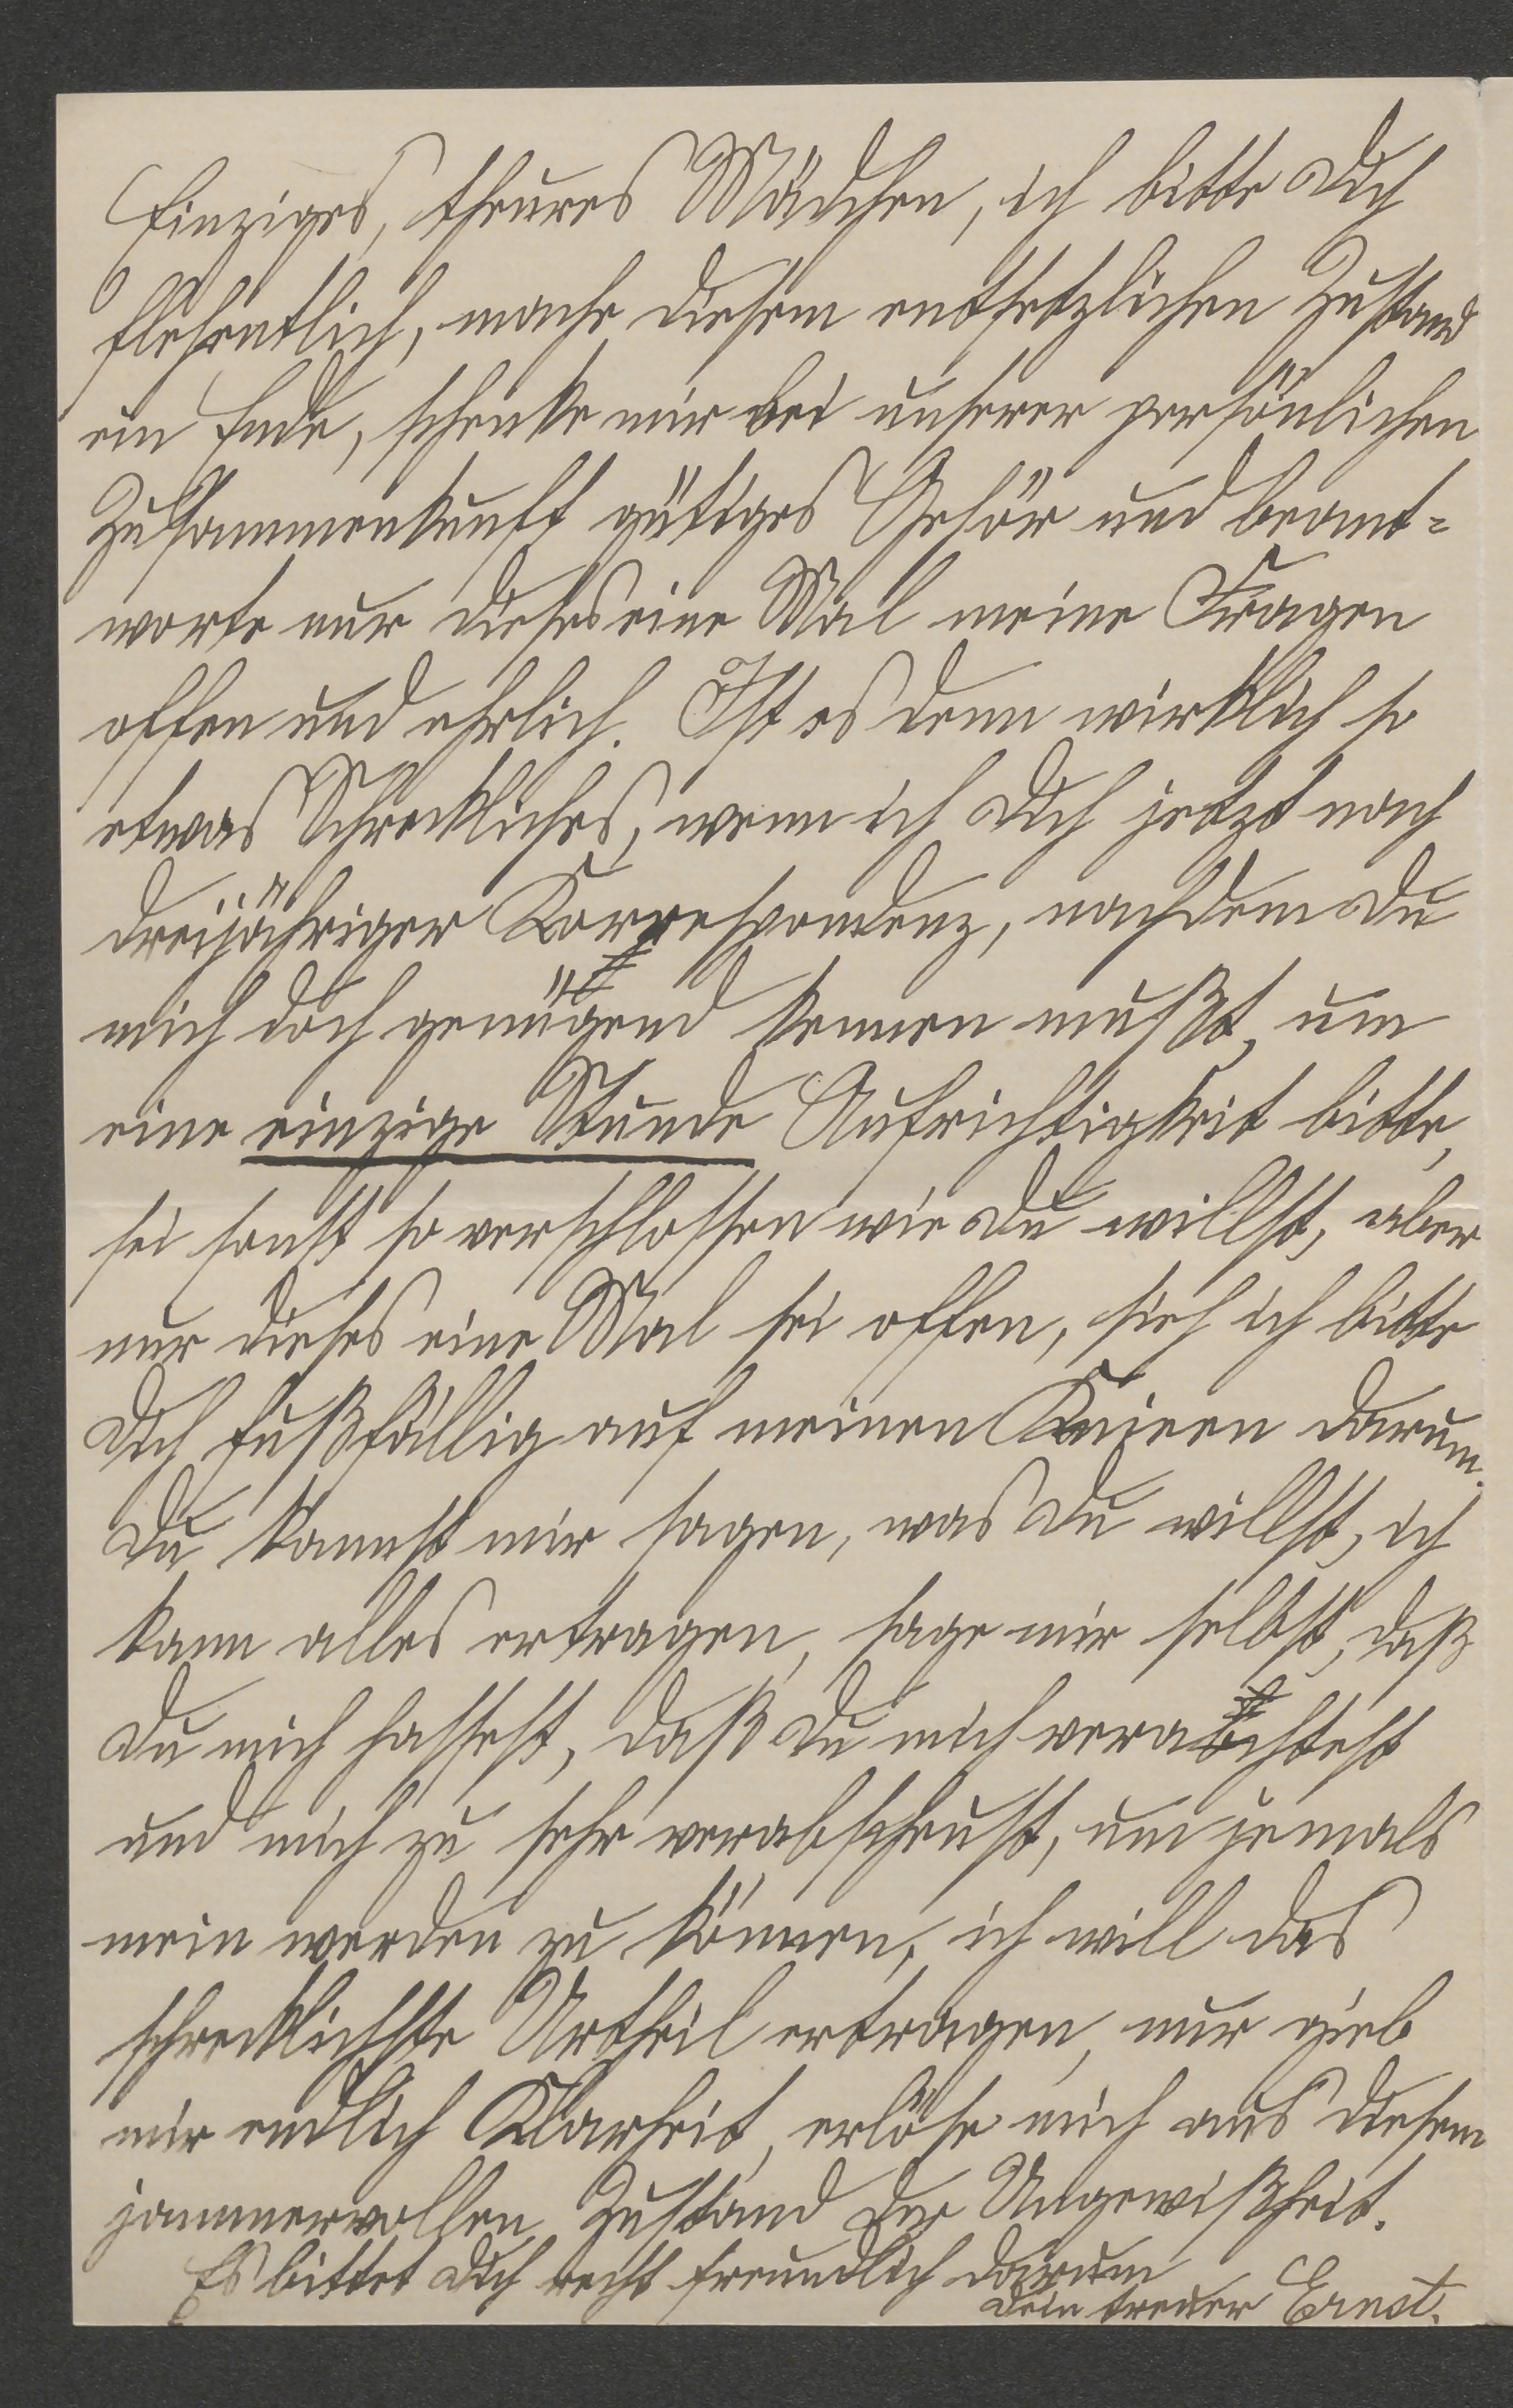 Einziges, theures Mädchen, ich bitte Dich
flehentlich, mache diesem entsetzlichen Zustand
ein Ende, schenke mir bei unserer persönlichen
Zusammenkunft gütiges Gehör und beant=
worte nur dieses eine Mal meine Fragen
offen und ehrlich. Ist es denn wirklich so
etwas Schreckliches, wenn ich Dich jetzt nach
dreijähriger Korrespondenz, nachdem Du
mich doch genügend kennen mußt, um
eine einzige Stunde Aufrichtigkeit bitte,
sei sonst so verschlossen wie Du willst, aber
nur dieses eine Mal sei offen, sieh ich bitte
Dich fußfällig auf meinen Knieen darum.
Du kannst mir sagen, was Du willst, ich
kann alles ertragen, sage mir selbst, daß
Du mich hassest, daß Du mich verachtest
und mich zu sehr verabscheust, um jemals
mein werden zu können, ich will das
schrecklichste Urtheil ertragen, nur gieb
mir endlich Klarheit, erlöse mich aus diesem
jammervollen Zustand der Ungewißheit.
Es bittet Dich recht freundlich darum
Dein treuer Ernst.